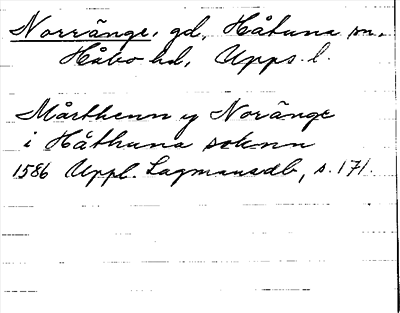 Norränge, gd, Håtuna sn.
Håbo hd, Upps. l.
Mårthenn y Noränge
i Håthuna soknn
1586 Uppl. Lagmansdb, s. 171.